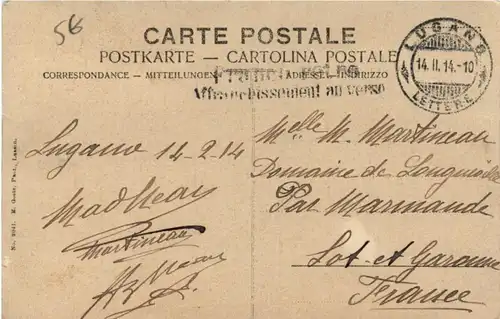 56
CARTE POSTALE
POSTKARTE – CARTOLINA POSTALE
CORRESPONDANCE – MITTEILUNGEN
ADRESSE – INDIRIZZO
Affranchissement au verso
LUGANO
14. II. 14.-10
LETTERE
Lugano 14-2-14
Martineau
Melle M. Martineau
Domaine de Longueville
Par Marmande
Lot-et Garonne
France